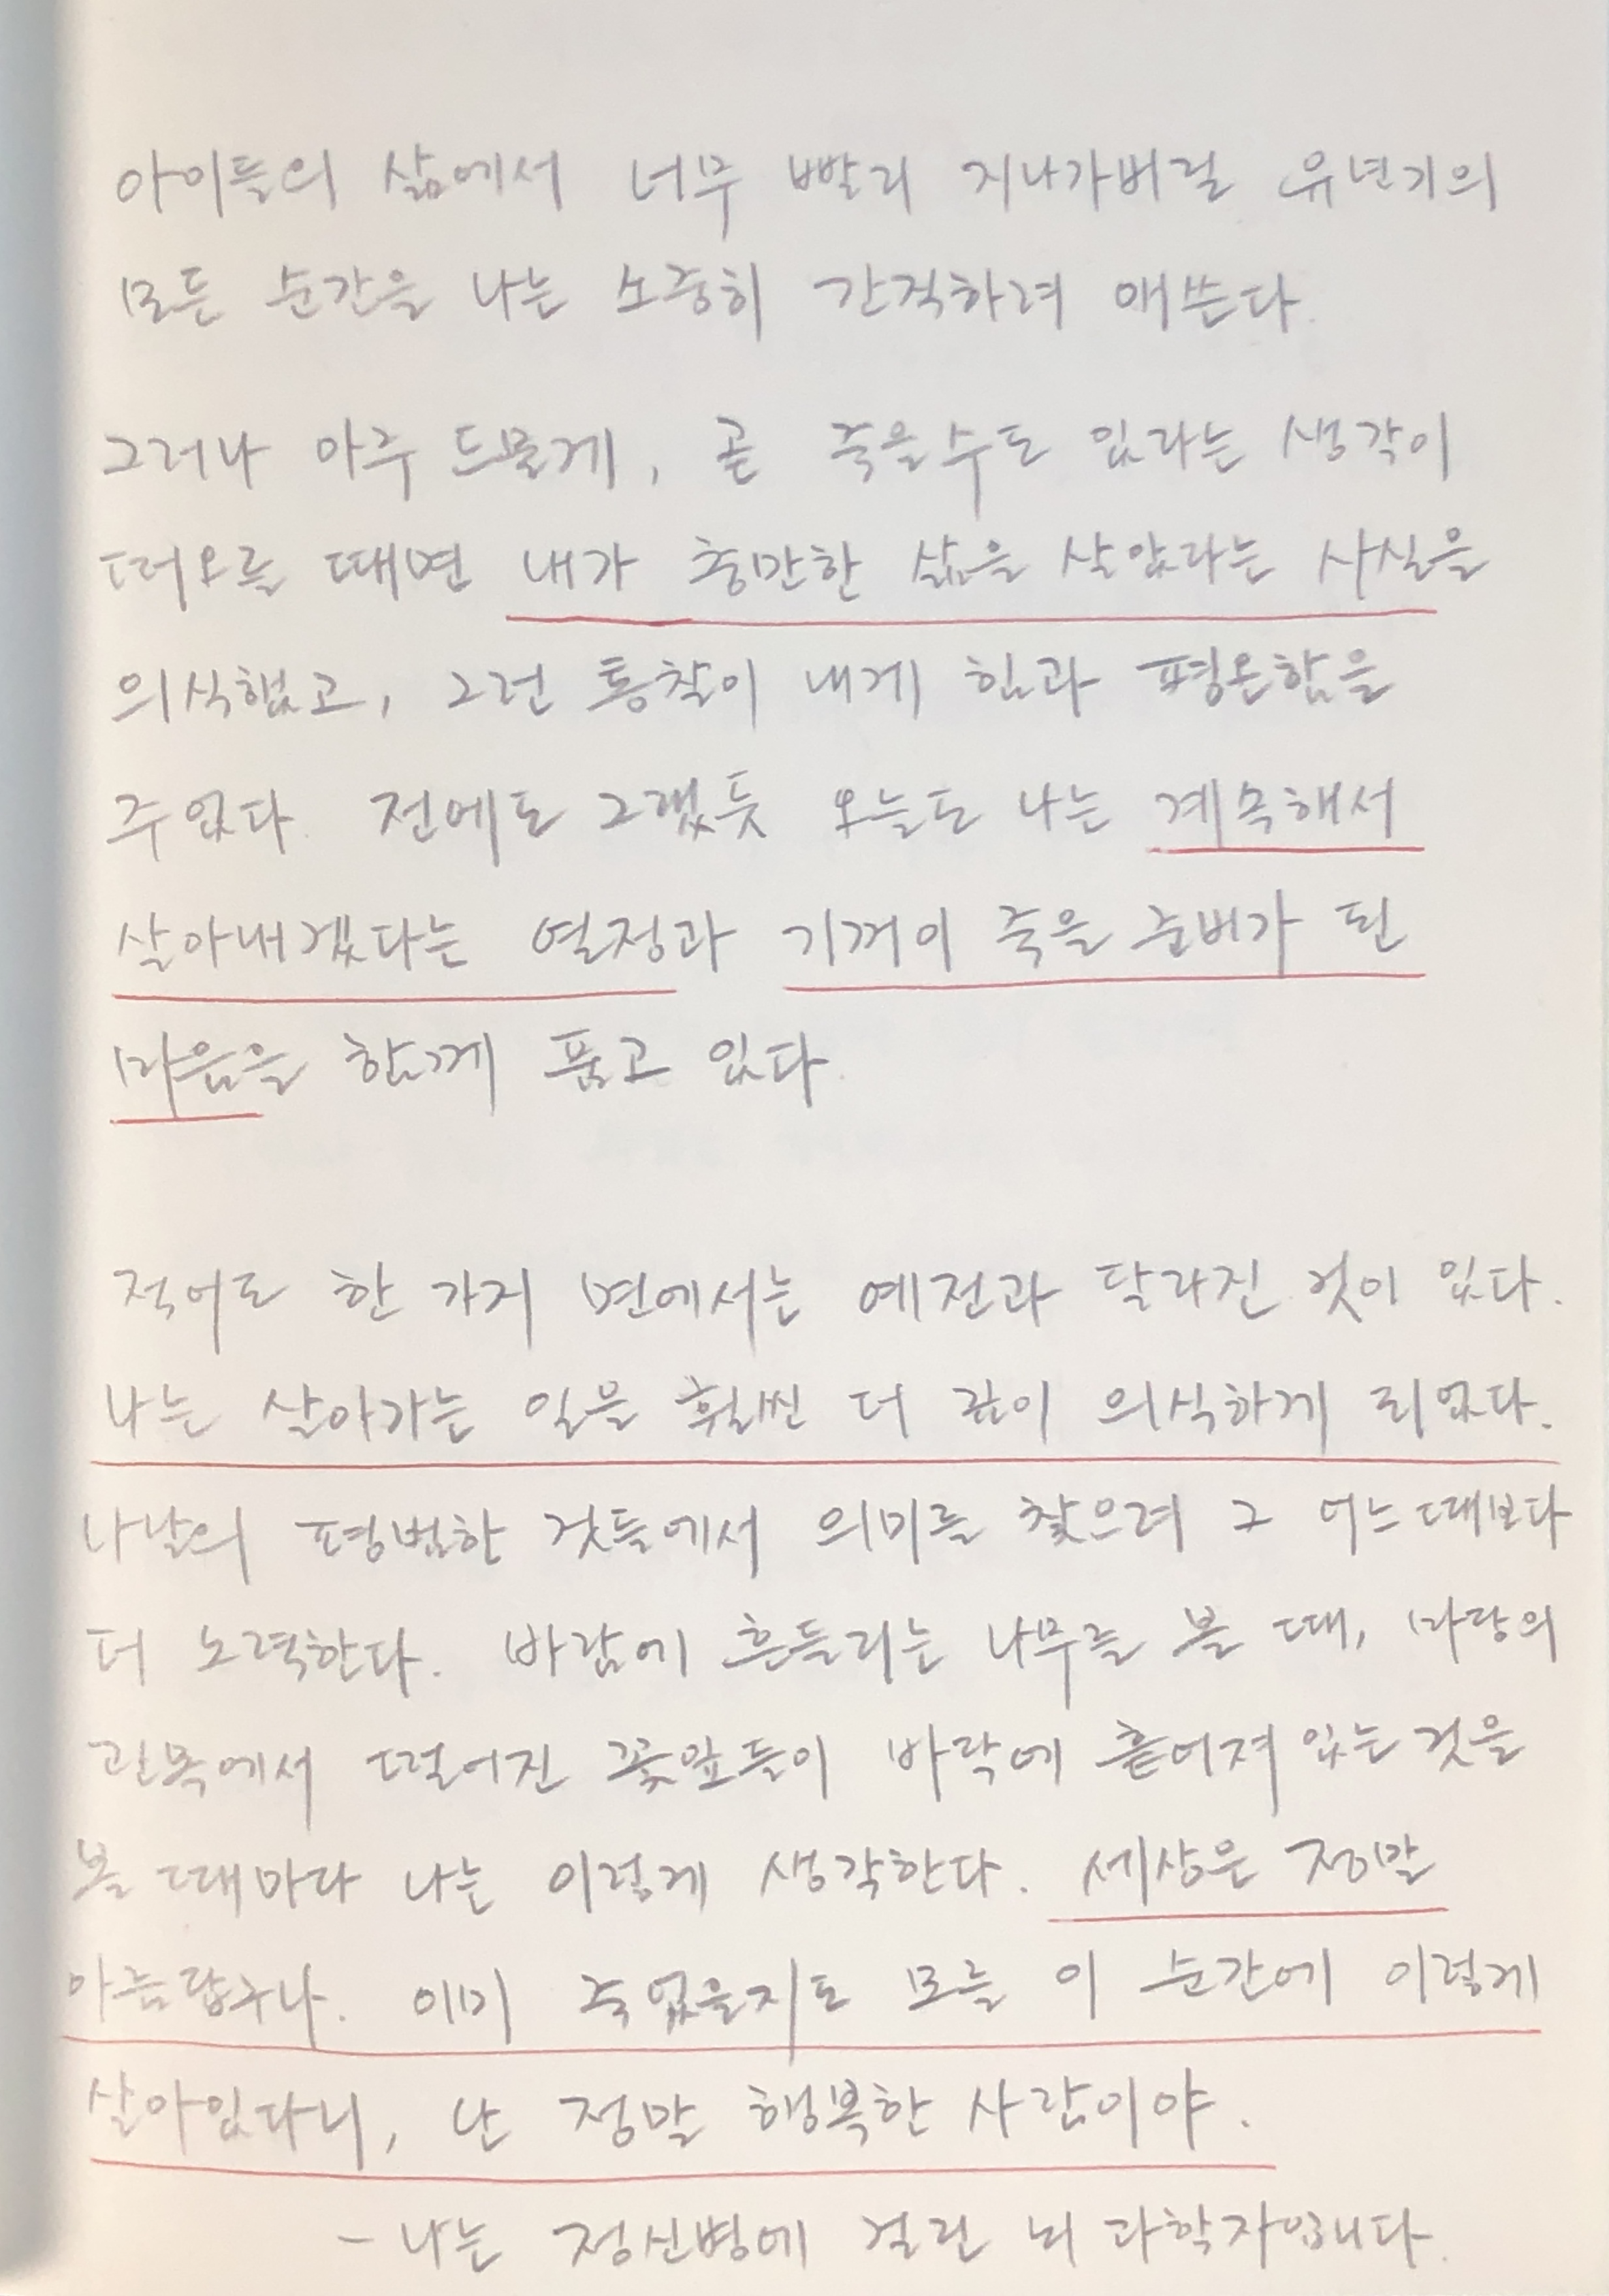 아이들의 삶에서 너무 빨리 지나가버릴 유년기의
모든 순간을 나는 소중히 간직하려 애쓴다.
그러나 아주 드물게, 곧 죽을수도 있다는 생각이
떠오를 때면 내가 충만한 삶을 살았다는 사실을
의식했고, 그런 통찰이 내게 힘과 평온함을
주었다. 전에도 그랬듯 오늘도 나는 계속해서
살아내겠다는 열정과 기꺼이 죽을 준비가 된
마음을 함께 품고 있다.
적어도 한 가지 면에서는 예전과 달라진 것이 있다.
나는 살아가는 일을 훨씬 더 깊이 의식하게 되었다.
나날의 평범한 것들에서 의미를 찾으려 그 어느때보다
더 노력한다. 바람에 흔들리는 나무를 볼 때, 마당의
관목에서 떨어진 꽃잎들이 바닥에 흩어져 있는 것을
볼 때마다 나는 이렇게 생각한다. 세상은 정말
아름답구나. 이미 죽었을지도 모를 이 순간에 이렇게
살아있다니, 난 정말 행복한 사람이야.
- 나는 정신병에 걸린 뇌 과학자입니다.